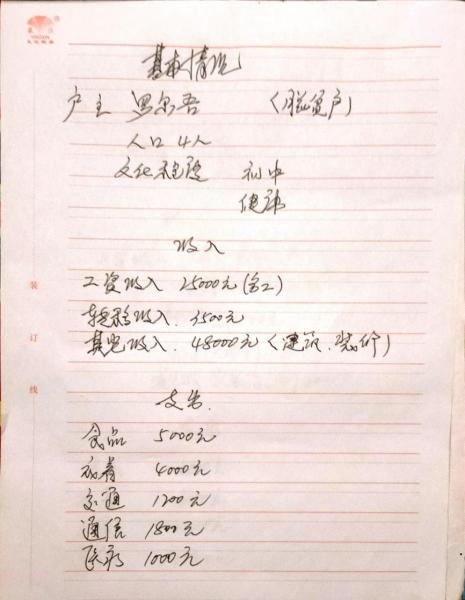 基本情况
户主 罗尔吾 (脱贫户)
人口 4人
文化程度 初中
健康
收入
工资收入 25000元(务工)
转移收入. 3500元
其它收入. 48000元(建筑.装修)
支出.
食品 5000元
衣着 4000元
交通 1200元
通信 1800元
医疗 1000元
装
订
线